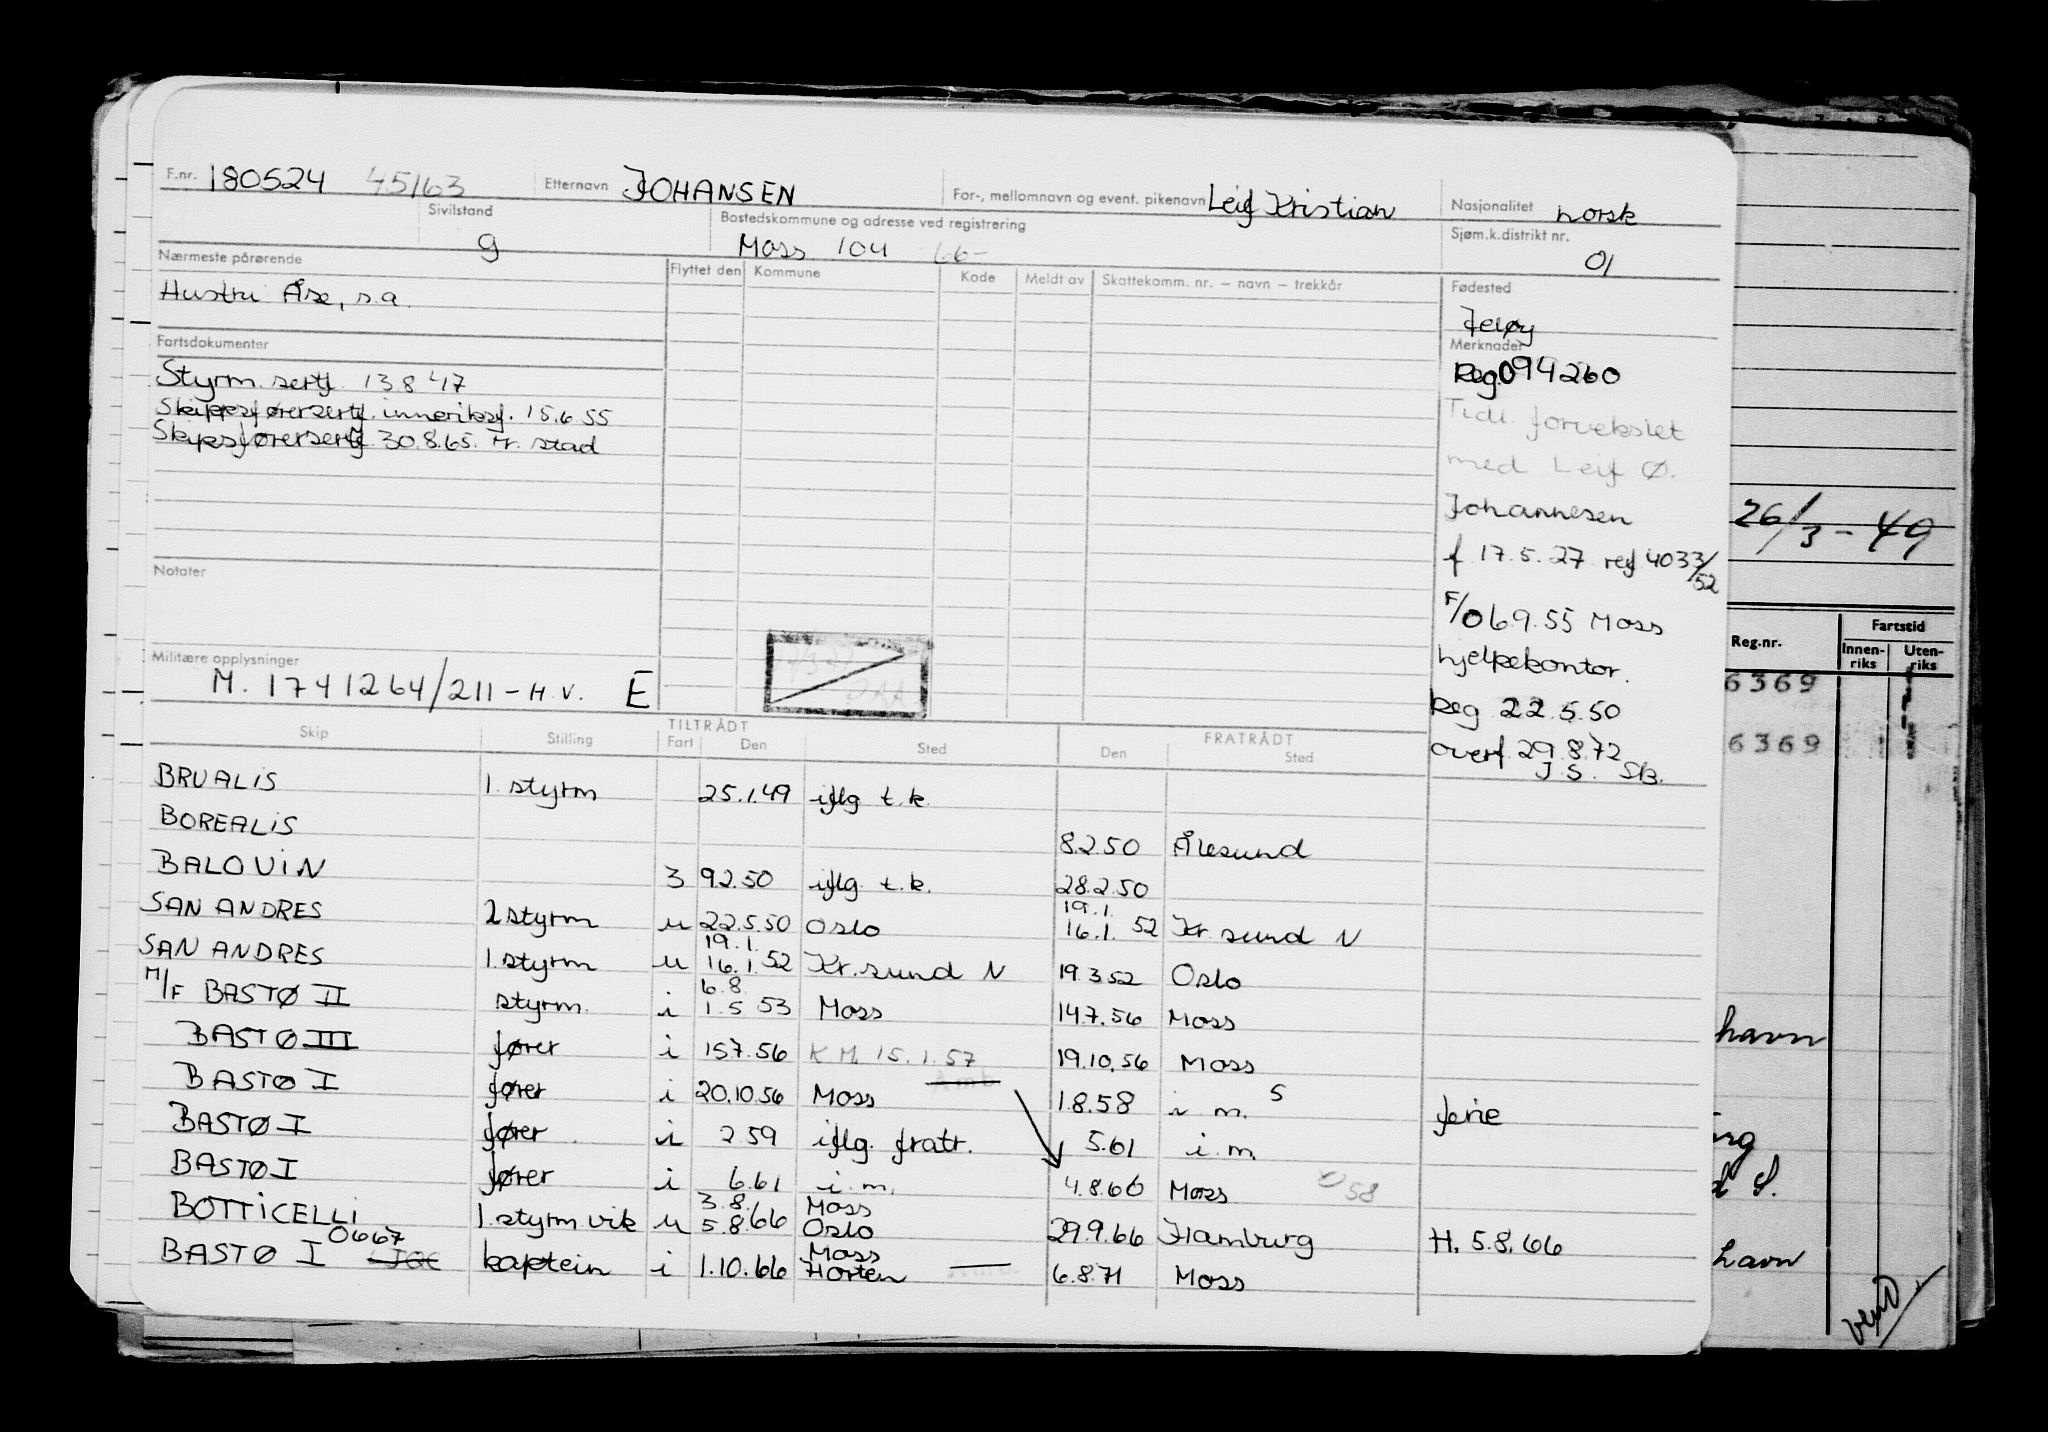 F.nr. 180524 45163 Etternavn JOHANSEN For-, mellomnavn og event. pikenavn Leif Kristian Nasjonalitet norsk
Sivilstand g Bostedskommune og adresse ved registrering Moss 104 66- Sjøm.k.distrikt nr. 01
Nærmeste pårørende Flyttet den Kommune Kode Meldt av Skattekomm. nr. – navn – trekkår Fødested
Hustru Åse, s.a. Jeløy
Fartsdokumenter Merknader
Styrm. sertf. 13.8.47 Reg. 094260
Skippsførersertf. innenriksf. 15.6.55 Tidl. forvekslet
Skipsførersertf 30.8.65. Kr. stad med Leif Ø.
Johannesen
26/3-49
f 17.5.27 ref 4033/52
Notater
F/O 6.9.55 Moss
hjelpekontor.
Militære opplysninger
M. 1741264/211-H.V. E
Reg 22.5.50
overf. 29.8.72
J.S. Sk3.
Reg.nr. Fartstid
Innen-riks Uten-riks
6369
6369
TILTRÅDT FRATRÅDT
Skip Stilling Fart Den Sted Den Sted
BRUALIS 1. styrm 25.1.49 iflg t.k.
BOREALIS 8.2.50 Ålesund
BALOUIN 3 9.2.50 iflg t.k. 28.2.50
SAN ANDRES 2 styrm u 22.5.50 Oslo 19.1. 16.1. 52 Kr. sund N
SAN ANDRES 1. styrm u 19.1. 16.1.52 Kr. sund N 19.3.52 Oslo
M/F BASTØ II styrm. i 6.8. 1.5 53 Moss 14.7.56 Moss
BASTØ III fører i 15.7.56 K M. 15.1.57 19.10.56 Moss
BASTØ I fører i 20.10.56 Moss 1.8.58 i m. S ferie
BASTØ I fører i 2 59 iflg. fratr. 5.61 i.m.
BASTØ I fører i 6.61 i.m. 4.8.66 Moss 58
BOTTICELLI 1. styrm vik u 3.8. 5.8.66 Moss Oslo 29.9.66 Hamburg H. 5.8.66
BASTØ I 0667 kaptein i 1.10.66 Moss Horten 6.8.71 Moss
havn
havn
vend